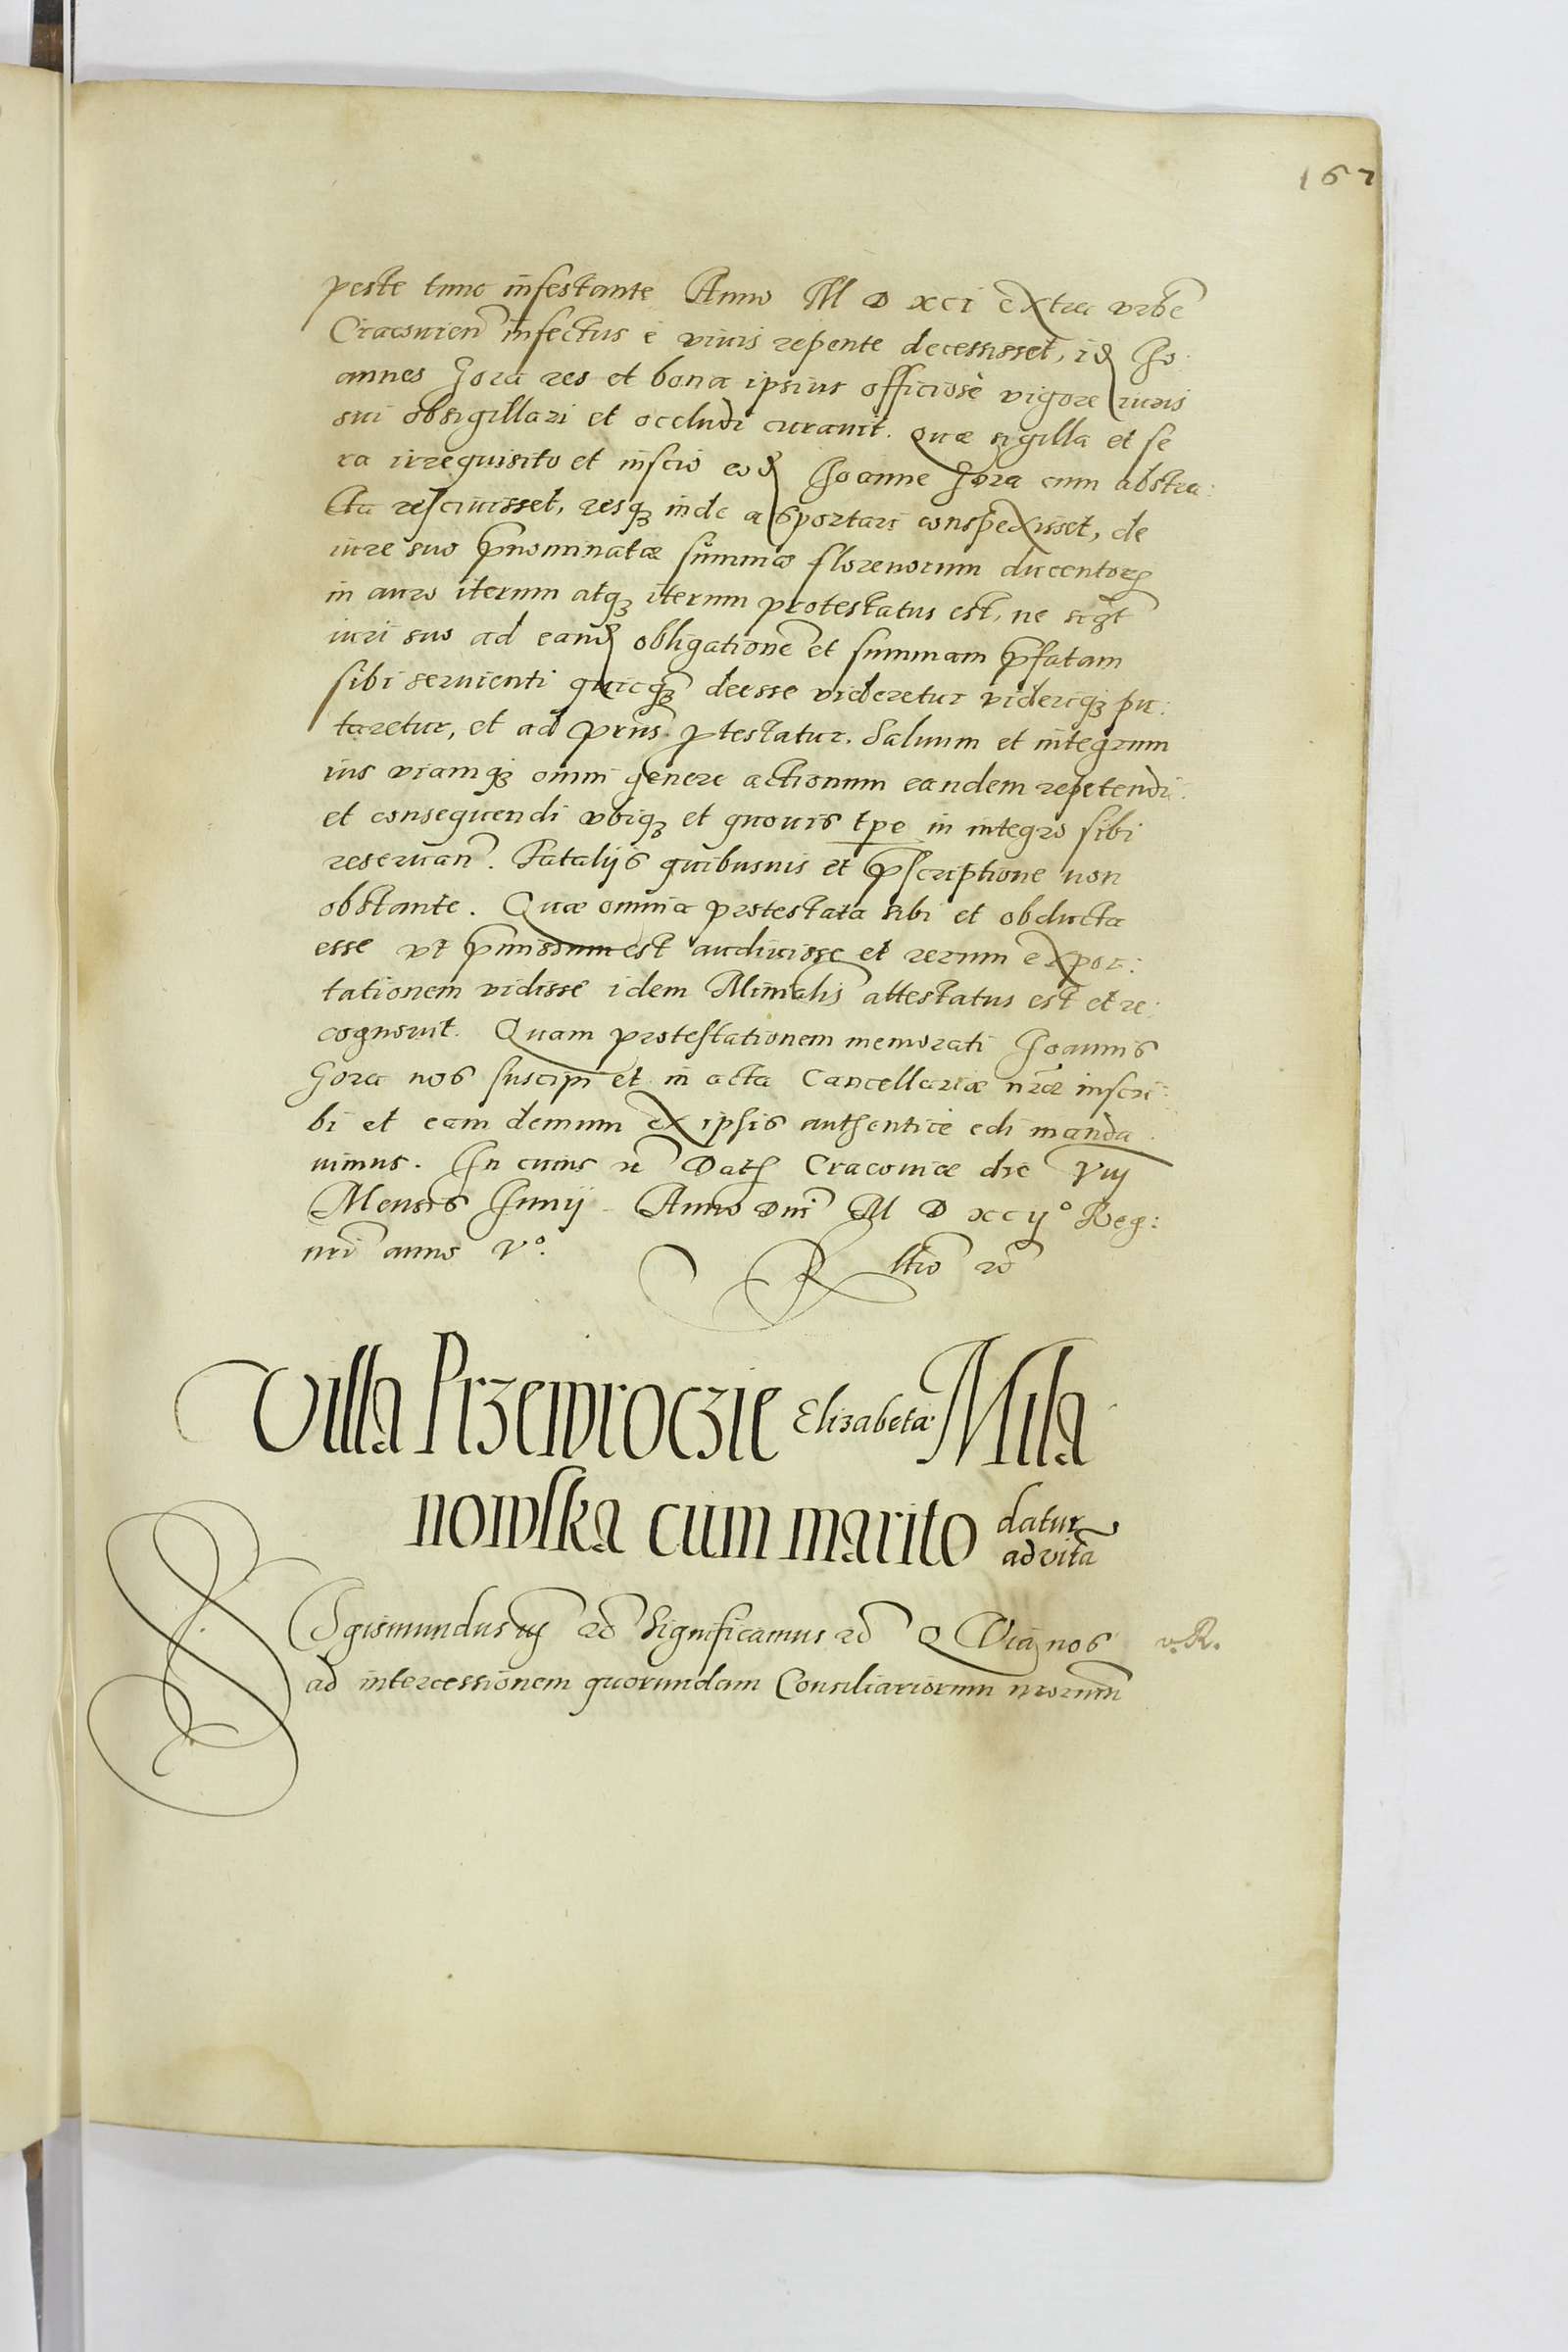 167
peste tunc infestante Anno M D xci extra vrbē
Cracouień infectus è viuis repente decessisset, idē Jo:
annes Gora res et bona ipsius officiosè vigore iuris
sui obsigillari et occludi curauit. Quæ sigilla et se
ra irrequisito et inscio eodē Joanne Gora cum abstra:
cta resciuisset, resqꝫ inde asportari conspexisset, de
iure suo p̄nominatæ summæ florenorum ducentorꝝ
in auro iterum atqꝫ iterum protestatus est, ne
iuri suo ad eandē obligationē et summam p̄fatam
sibi seruienti quicqꝫ deesse videretur videriqꝫ pu:
taretur, et ad p̄ns ꝓtestatur. Saluum et integrum
ius viamqꝫ omni genere actionum eandem repetendi
et consequendi vbiqꝫ et quouis tpe in integro sibi
reseruań. Fatalijs quibusuis et p̄scriptione non
obstante. Quæ omnia protestata sibi et obducta
esse vt p̄missum est audiuisse et rerum expor:
tationem vidisse idem Minĩalis attestatus est et re:
cognouit. Quam protestationem memorati Joannis
Gora nos suscipi et in acta Cancellariæ nr̄æ inscri:
bi et eam demum ex ipsis authenticè edi manda
uimus. In cuius rē Datꝫ Cracouiæ die vij
Mensis Junij Anno Dnī M D xcij° Reg:
nri anno V°.
R ltio rō
Villa Przewroczie Elizabeta Mila
nowska cum marito datur
ad vitā
Sigismundus iij rō Significamus rō Q Via nos v.R.
ad intercessionem quorundam Consiliariorum nrorum